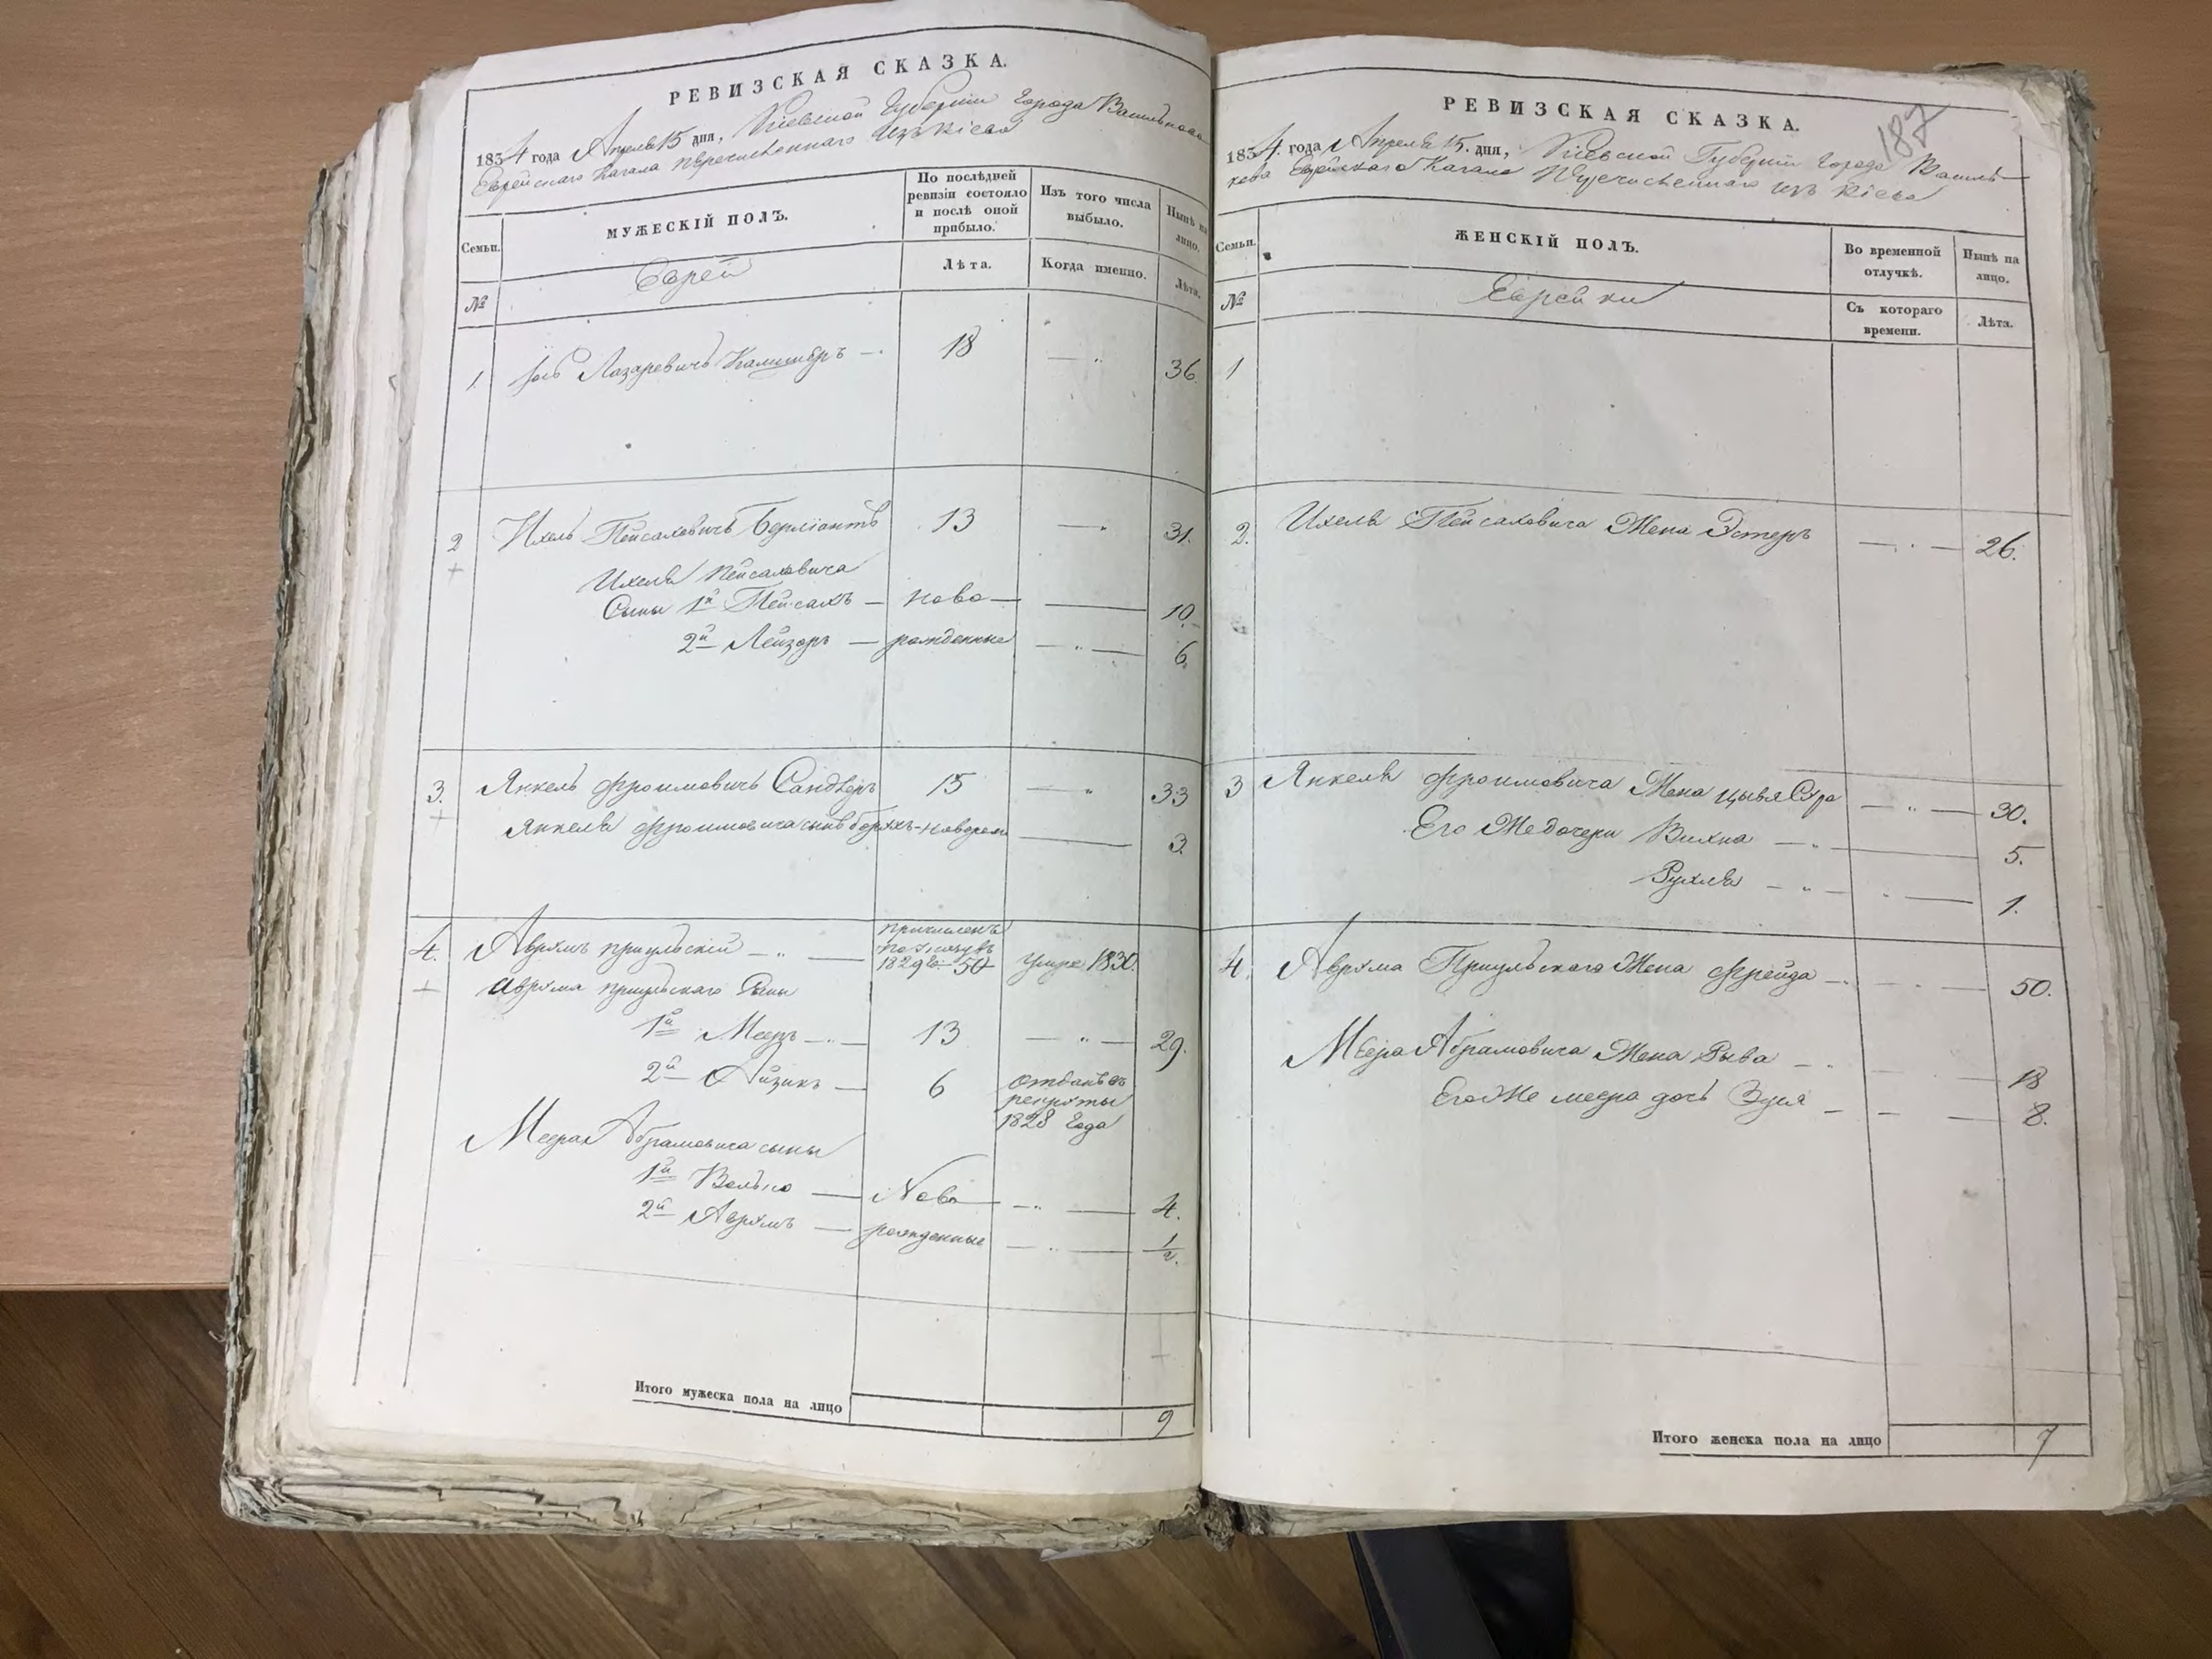 РЕВИЗСКАЯ СКАЗКА.
1834 года Апреля 15 дня, Киевской Губернии Города Василькова
Еврейскаго Кагала перечисленнаго изъ Кіева
Семьи.
МУЖЕСКІЙ ПОЛЪ.
По послѣдней ревизіи состояло и послѣ оной прибыло.
Изъ того числа выбыло.
Нынѣ на лицо.
№
Еврей
Лѣта.
Когда именно.
Лѣта.
1 Лазаревичъ — 18 — " 36.
2 Ихель Пейсаховичъ Берліантъ 13 — " 31.
Ихеля Пейсаховича
Сыны 1й Пейсахъ — ново — 10.
2й Лейзоръ — рожденные — " — 6.
3. Янкель Фроимовичъ Сандлеръ 15 — " 33
Янкеля Фроимовича сынъ — новорож 3.
причисленъ
4. Аврумъ — " — 1829 50 умре 1830.
Аврума Сыны
1й Мееръ — " — 13 — " — 29.
2й Айзикъ — 6 отданъ въ
рекруты
1828 Года
Меера Абрамовича сыны
1й Волько — Ново — " — 4.
2й Аврумъ — рожденные — " — 1/2.
Итого мужеска пола на лицо 9
187
РЕВИЗСКАЯ СКАЗКА.
1834. года Апреля 15. дня, Киевской Губерніи Города Василь-
кова Еврейскаго Кагала Перечисленнаго изъ Кіева
Семьи.
ЖЕНСКІЙ ПОЛЪ.
Во временной отлучкѣ.
Нынѣ на лицо.
№
Еврейки
Съ котораго времени.
Лѣта.
1
2. Ихеля Пейсаховича Жена Эстеръ — " — 26.
3 Янкеля Фроимовича Жена Цывя Сура — " — 30.
Его Же дочери Вихна — " — 5.
Рухля — " — 1.
4. Аврума Жена Фрейда — " — 50.
Меера Абрамовича Жена Рыва — " — 18
Его Же Меера дочь — 8.
Итого женска пола на лицо 7